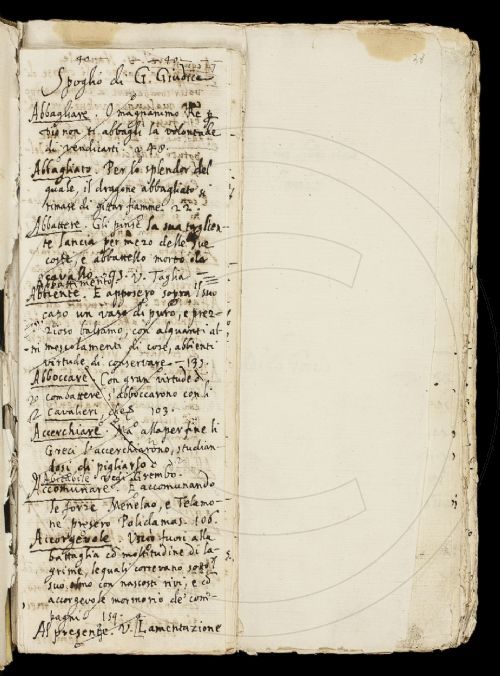 Spoglio di G. Giudice
Abbagliare. O magnanimo Re p
Dio non ti abbagli la volontade
di vendicarti. a 48.
Abbagliato. Per lo splendor del
quale, il dragone abbagliato si
rimase di gittar fiamme. 22.
Abbattere. Gli pinse la sua taglien-
te lancia per mezo delle sue
coste, e abbattello morto da
cavallo. 93. V. Taglia
Abbattimento.
Abbiente. E apposero sopra il suo
capo un vaso di puro, e prez-
zioso balsamo, con alquanti al-
tri mescolamenti di cose, abbienti
virtude di conservare. 135.
Abboccare. Con gran virtude di
combattere s'abboccarono con li
Cavalieri, che 103.
Accerchiare. Ma alla per fine li
Greci l'accerchiarono, studian-
dosi di pigliarlo
Accetevole. Vedi Grembo.
Accomunare. E accomunando
le forze Menelao, e Telamo-
ne presero Polidamas. 106.
Accorgevole. Uscio fuori alla
battaglia cō moltitudine di la-
grime, le quali correvano sotto 'l
suo elmo con nascosti rivi, e cō
accorgevole mormorio de' com-
pagni. 154.
Al presente. V. Lamentazione
38